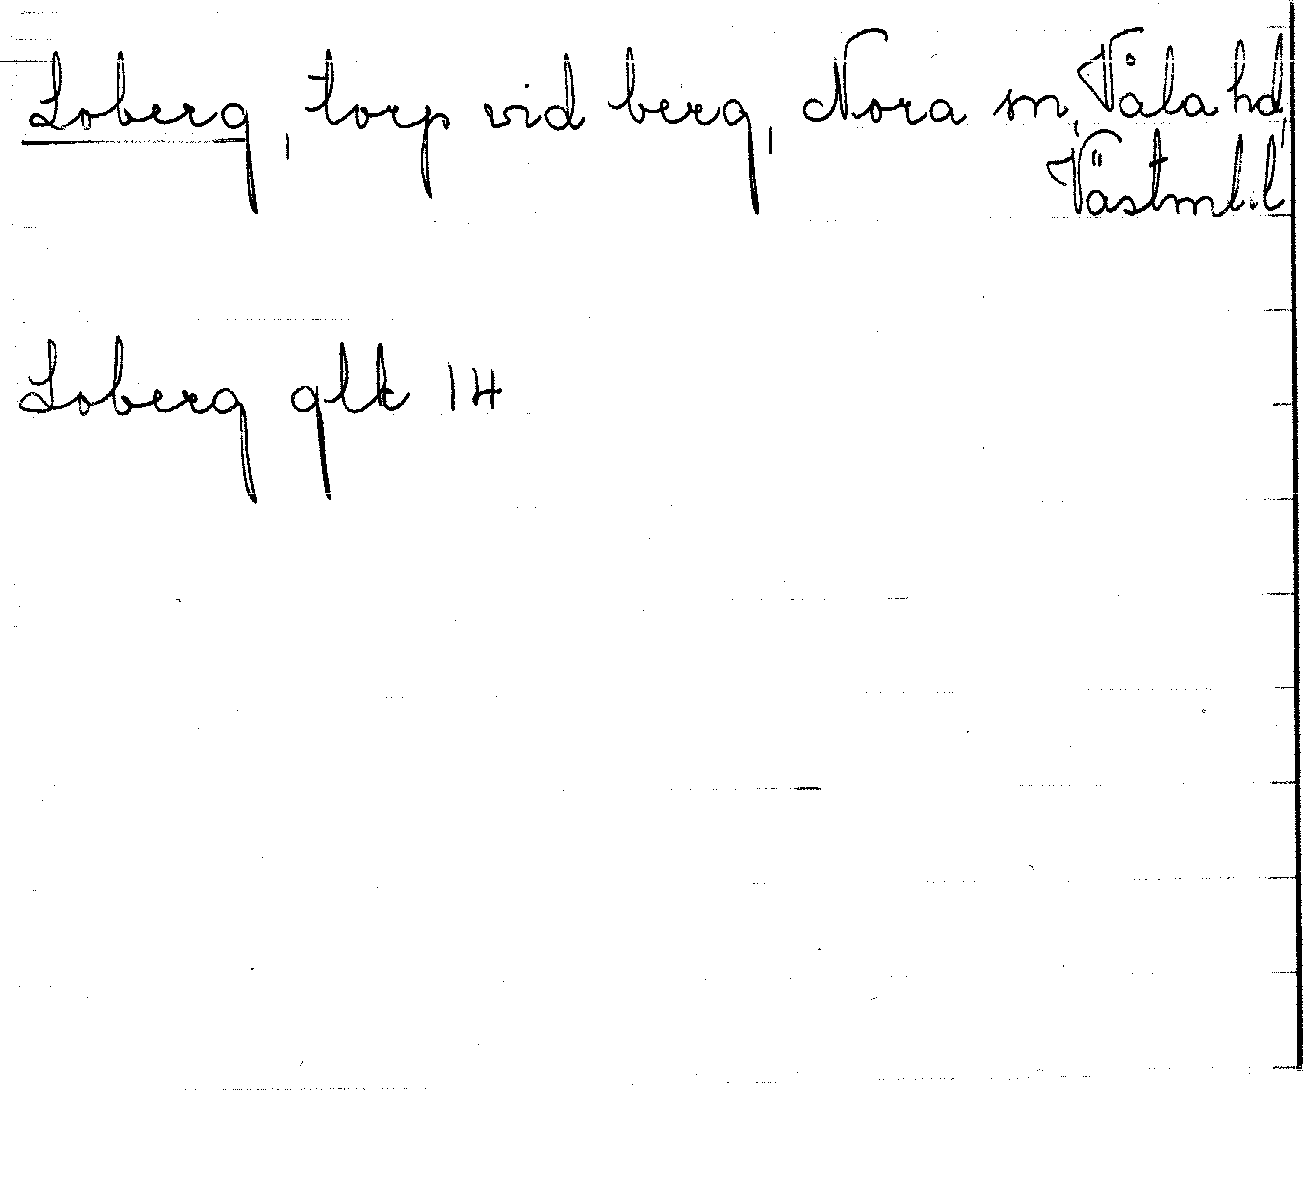 Loberg, torp vid berg, Nora sn, Våla hd,
Västml. l
Loberg glk 14